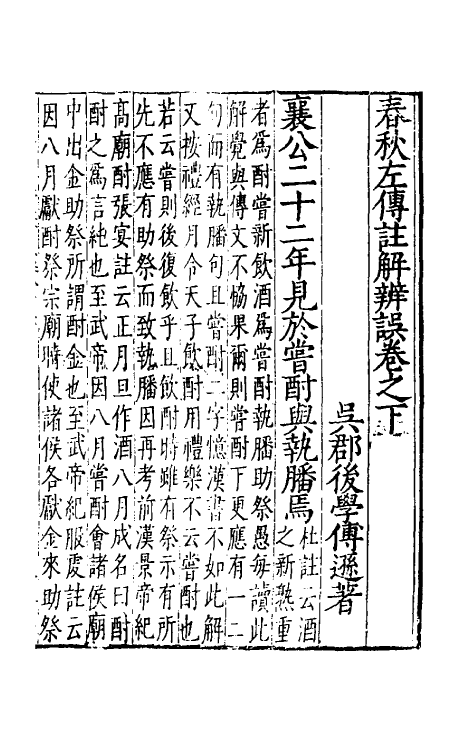 春秋左傳註解辨誤卷之下
吳郡後學傅遜著
襄公二十二年見於嘗酎與執膰焉
杜註云酒
之新熟重
者爲酎嘗新飲酒爲嘗酎執膰助祭愚每讀此
解覺與傳文不恊果爾則嘗酎下更應有一二
句而有執膰句且嘗酎二字憶漢書不如此解
又按禮經月令天子飲酎用禮樂不云嘗酎也
若云嘗則後復飲乎且飲酎時雖有祭示有所
先不應有助祭而致執膰因再考前漢景帝紀
高廟酎張宴註云正月旦作酒八月成名曰酎
酎之爲言純也至武帝因八月嘗酎會諸侯廟
中出金助祭所謂酎金也至武帝紀服虔註云
因八月獻酎祭宗廟時使諸侯各獻金來助祭